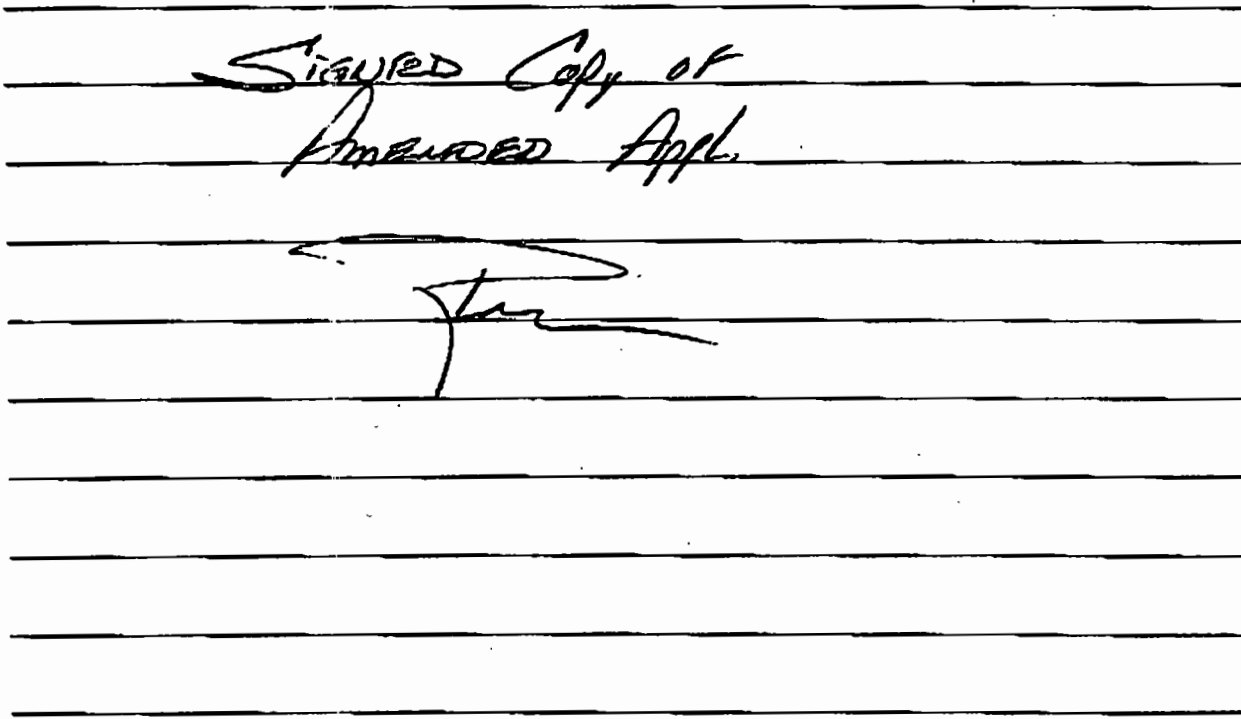 Signed Copy of
Amended Appl.